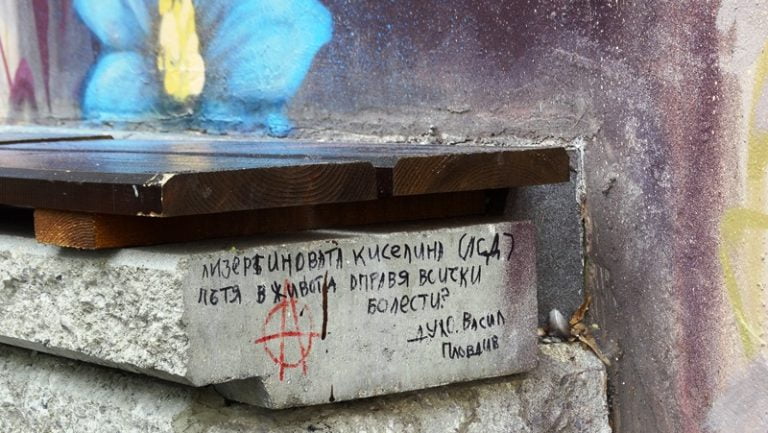 ЛИЗЕРГИНОВАТА КИСЕЛИНА (ЛСД)
ПЪТЯ В ЖИВОТА ОПРАВЯ ВСИЧКИ
БОЛЕСТИ?
ДУХО. ВАСИЛ
ПЛОВДИВ